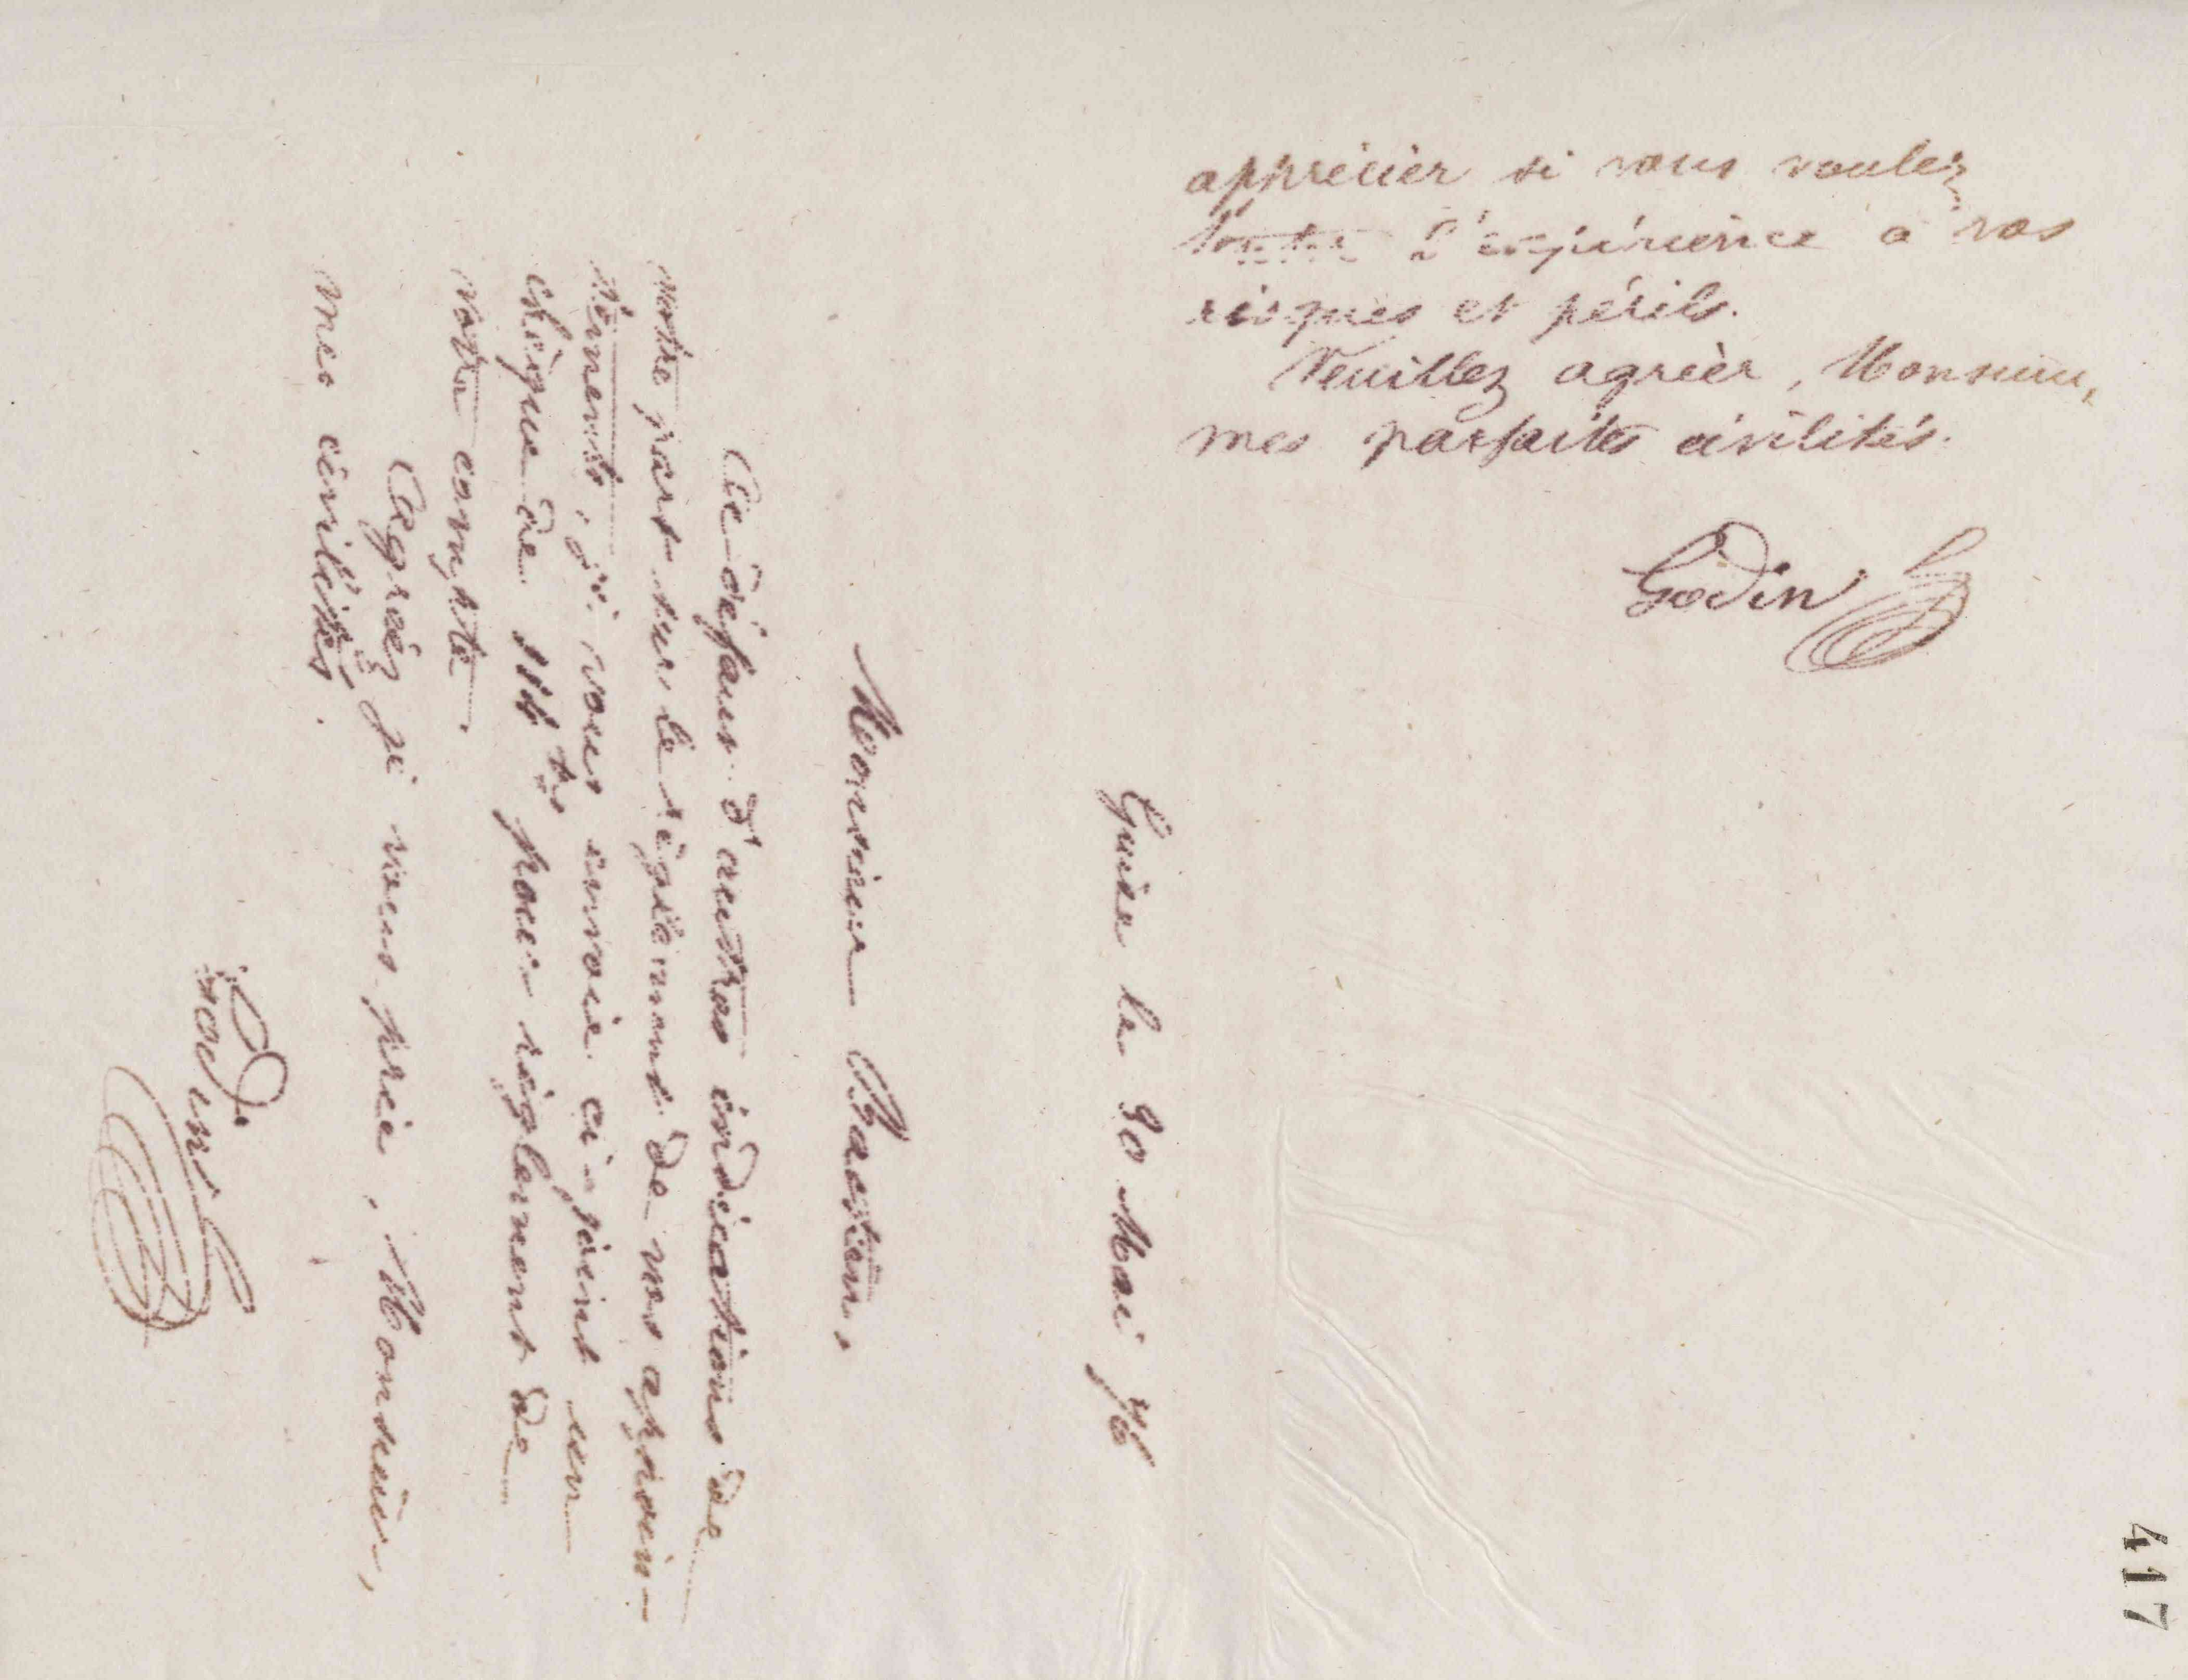 apprécier si vous voulez
tenter l'expérience à vos
risques et périls.
Veuillez agréer, Monsieur,
mes parfaites civilités.
Godin
Guise le 30 Mai 76
Monsieur Bastien,
À défaut d'autres indications de
votre part sur le règlement de vos appoin-
tements, je vous envoie ci-joint un
chèque de pour règlement de
votre compte.
Agréez je vous prie, Monsieur,
mes civilités.
Godin
417